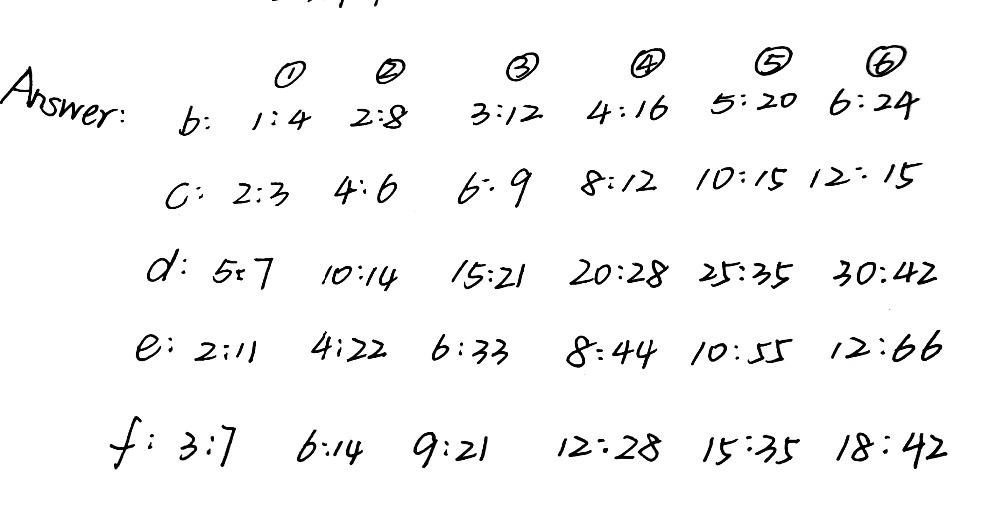 ① ② ③ ④ ⑤ ⑥
Answer: b: 1:4 2:8 3:12 4:16 5:20 6:24
c: 2:3 4:6 6:9 8:12 10:15 12:15
d: 5:7 10:14 15:21 20:28 25:35 30:42
e: 2:11 4:22 6:33 8:44 10:55 12:66
f: 3:7 6:14 9:21 12:28 15:35 18:42